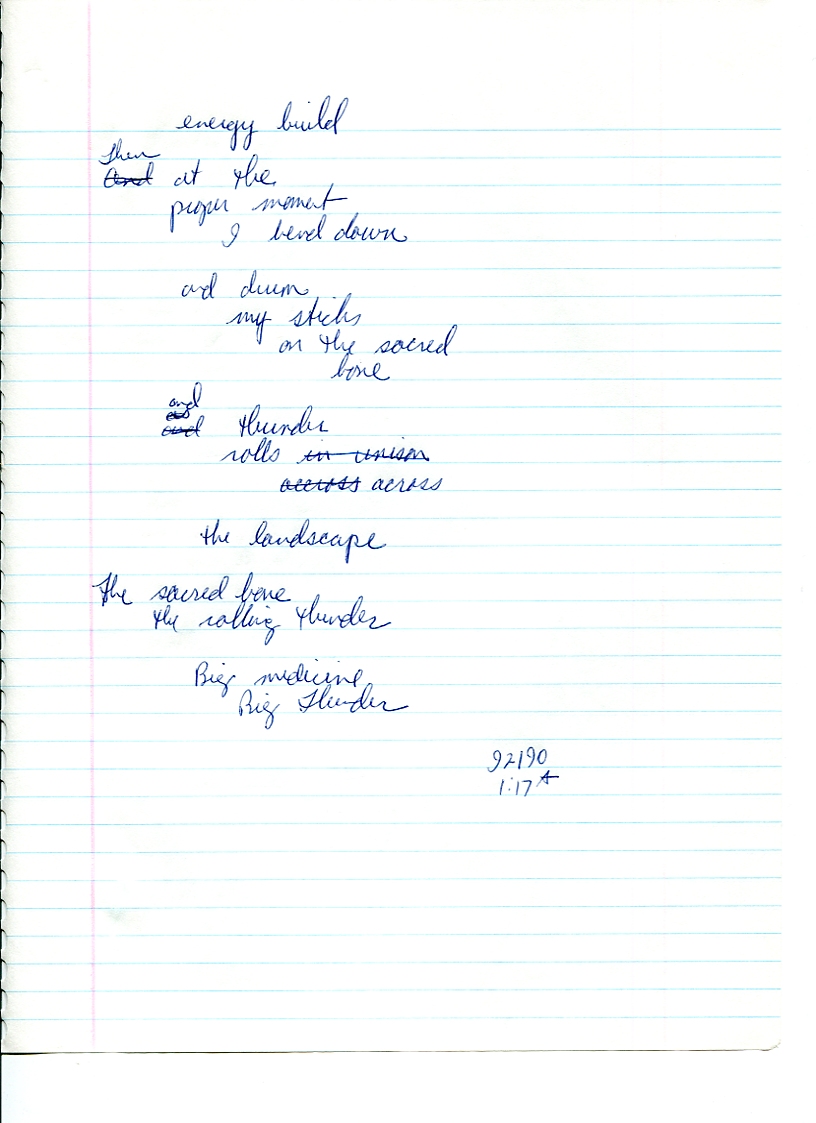 energy build
Then
And at the
proper moment
I bend down
and drum
my sticks
on the sacred
bone
and
as
and thunder
rolls in unison
accross across
the landscape
The sacred bone
the rolling thunder
Big medicine
Big Thunder
92190
1:17 A